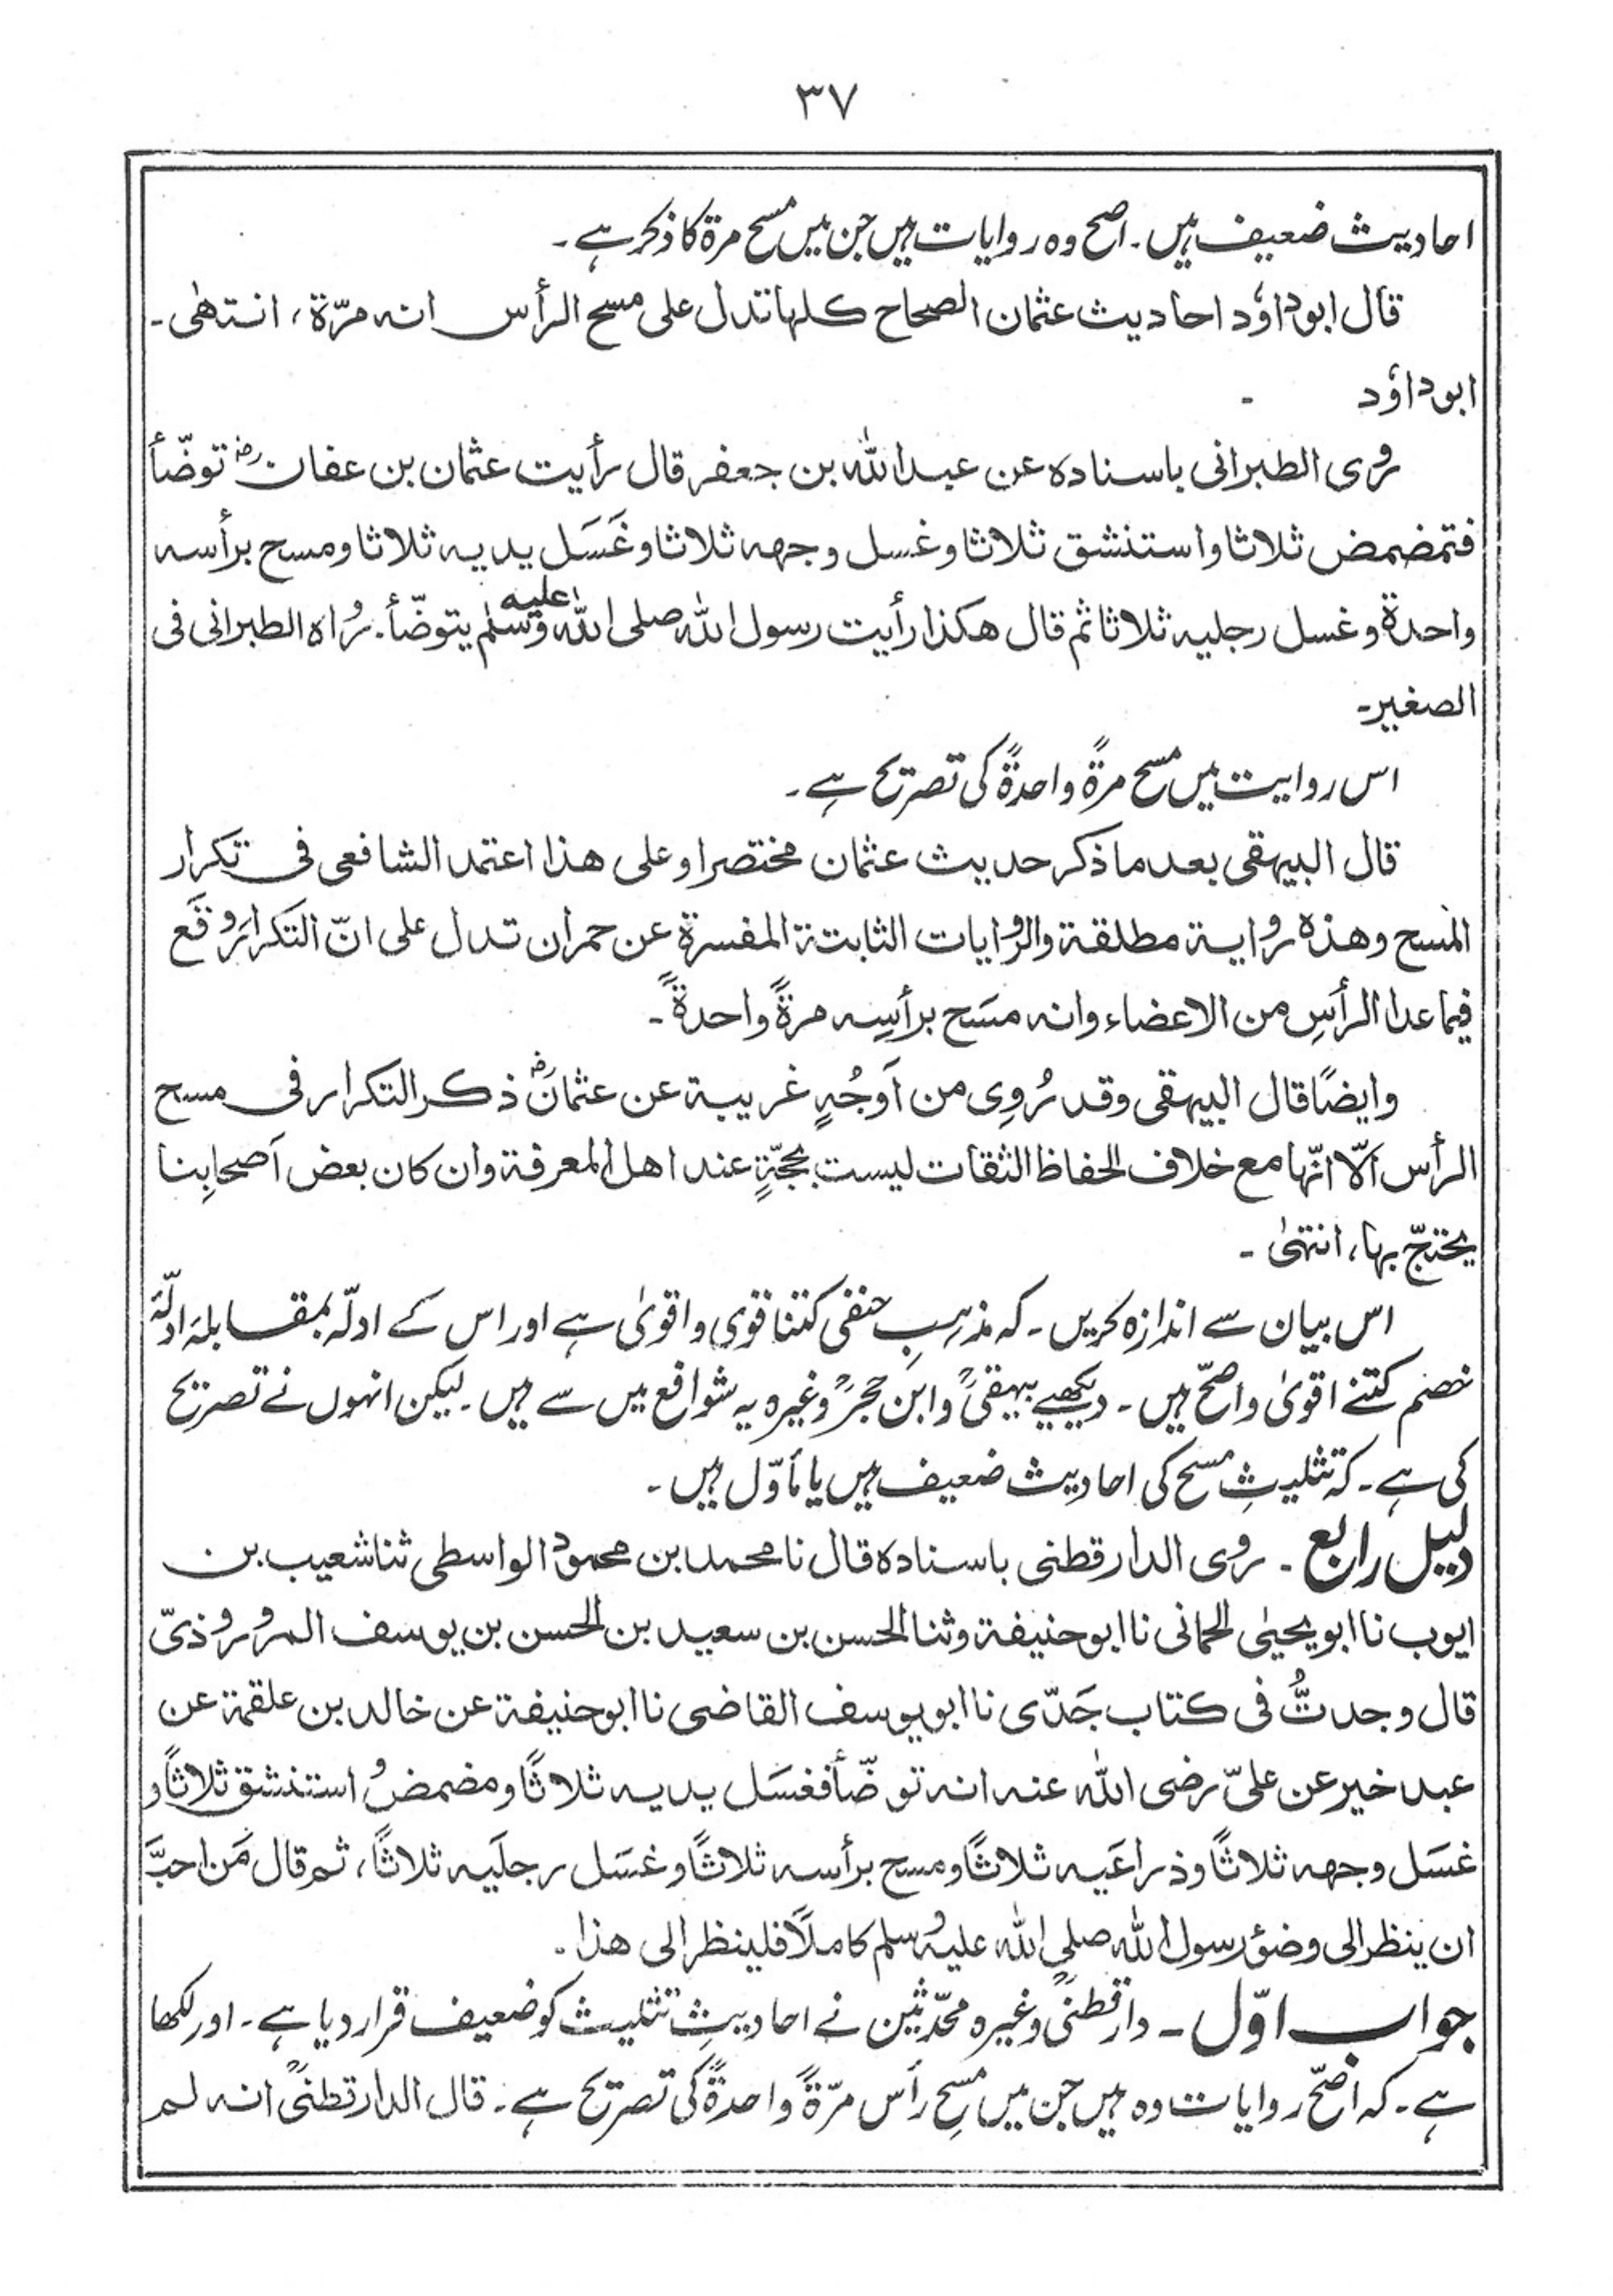 ۳۷
احادیث ضعیف ہیں۔ اصح وہ روایات ہیں جن میں مسح مرۃ کا ذکر ہے۔
قال ابوداؤد احادیث عثمان الصحاح کلہا تدل علی مسح الرأس انہ مرّۃ، انتہٰی۔
ابوداؤد -
روی الطبرانی باسنادہ عن عبداللہ بن جعفر قال رأیت عثمان بن عفان رضہ توضّأ
فتمضمض ثلاثا واستنشق ثلاثا وغسل وجھہ ثلاثا وغَسَل یدیہ ثلاثا ومسح برأسہ
واحدۃ وغسل رجلیہ ثلاثا ثم قال ھکذا رأیت رسول اللہ صلی اللہ علیہ وسلم یتوضّأ۔ رواہ الطبرانی فی
الصغیر۔
اس روایت میں مسح مرۃً واحدۃً کی تصریح ہے۔
قال البیہقی بعد ما ذکر حدیث عثمان مختصرا وعلی ھذا اعتمد الشافعی فی تکرار
المسح وھذہ روایۃ مطلقۃ والروایات الثابتۃ المفسرۃ عن حمران تدل علی انّ التکرار وقَع
فیما عدا الرأسِ من الاعضاء وانہ مسَح برأسِہ مرۃً واحدۃً۔
وایضًا قال البیہقی وقد رُوِی من اَوجُہٍ غریبۃ عن عثمانؓ ذکر التکرار فی مسح
الرأس اَلّا انّہا مع خلاف الحفاظ الثقات لیست بحجّۃٍ عند اھل المعرفۃ وان کان بعض اَصحابِنا
یحتجّ بہا، انتہیٰ۔
اس بیان سے اندازہ کریں۔ کہ مذہبِ حنفی کتنا قوی واقویٰ ہے اور اس کے ادلّہ بمقابلۂ ادلّۂ
خصم کتنے اقویٰ واصحّ ہیں۔ دیکھیے بیہقیؒ وابن حجرؒ وغیرہ یہ شوافع میں سے ہیں۔ لیکن انہوں نے تصریح
کی ہے۔ کہ تثلیثِ مسح کی احادیث ضعیف ہیں یا مأوّل ہیں۔
دلیل رابع۔ روی الدارقطنی باسنادہ قال نا محمد بن محمود الواسطی ثنا شعیب بن
ایوب نا ابو یحییٰ الحمانی نا ابوحنیفۃ وثنا الحسن بن سعید بن الحسن بن یوسف المروروذیّ
قال وجدتُّ فی کتاب جَدّی نا ابویوسف القاضی نا ابوحنیفۃ عن خالد بن علقمۃ عن
عبد خیر عن علیّ رضی اللہ عنہ انہ توضّأ فغسَل یدیہ ثلاثًا ومضمض و استنشق ثلاثًا و
غسَل وجھہ ثلاثًا وذراعَیہ ثلاثًا ومسح برأسہ ثلاثًا وغسَل رجلَیہ ثلاثًا، ثم قال مَن احبَّ
ان ینظر الی وضؤ رسول اللہ صلی اللہ علیہ وسلم کاملًا فلینظر الی ھذا۔
جواب اوّل۔ دارقطنیؒ وغیرہ محدّثین نے احادیثِ تثلیث کو ضعیف قرار دیا ہے۔ اور لکھا
ہے۔ کہ اَصحّ روایات وہ ہیں جن میں مسحِ رأس مرّۃً واحدۃً کی تصریح ہے۔ قال الدارقطنیؒ انہ لم